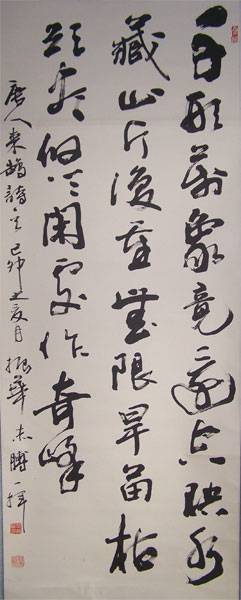 千形萬象竟還空映水
藏山片復重無限旱苗枯
欲盡悠悠閑處作奇峰
唐人來鵠詩 己卯之夏月 振華